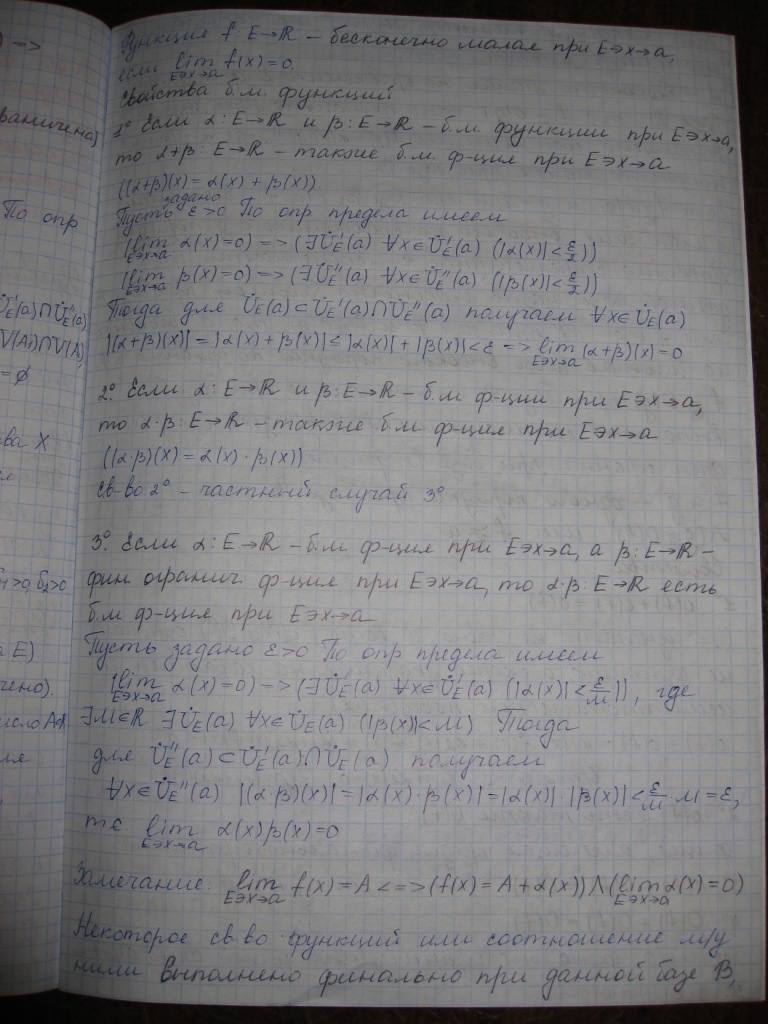 ) =>
раничена)
По опр
U̇'_E(a)∩U̇''_E(a)
V(A₁)∩V(A₂)
= ∅
ва X
δ₁>0, δ₂>0
а E)
чено).
Функция f: E→ℝ – бесконечно малая при E∋x→a,
если lim_{E∋x→a} f(x)=0.
Свойства б.м. функций
1° Если α: E→ℝ и β: E→ℝ – б.м. функции при E∋x→a,
то α+β: E→ℝ – также б.м. ф-ция при E∋x→a
((α+β)(x)=α(x)+β(x))
задано
Пусть ε>0 По опр предела имеем
(lim_{E∋x→a} α(x)=0) => (∃U̇'_E(a) ∀x∈U̇'_E(a) (|α(x)|<ε/2))
(lim_{E∋x→a} β(x)=0) => (∃U̇''_E(a) ∀x∈U̇''_E(a) (|β(x)|<ε/2))
Тогда для U̇_E(a)⊂U̇'_E(a)∩U̇''_E(a) получаем ∀x∈U̇_E(a)
|(α+β)(x)|=|α(x)+β(x)|≤|α(x)|+|β(x)|<ε => lim_{E∋x→a} (α+β)(x)=0
2°. Если α: E→ℝ и β: E→ℝ – б.м ф-ции при E∋x→a,
то α·β: E→ℝ – также б.м ф-ция при E∋x→a
((α·β)(x)=α(x)·β(x))
Св-во 2° – частный случай 3°
3°. Если α: E→ℝ – б.м ф-ция при E∋x→a, а β: E→ℝ –
фин. огранич. ф-ция при E∋x→a, то α·β: E→ℝ есть
б.м ф-ция при E∋x→a
Пусть задано ε>0 По опр предела имеем
(lim_{E∋x→a} α(x)=0) => (∃U̇'_E(a) ∀x∈U̇'_E(a) (|α(x)|<ε/M)), где
∃M∈ℝ ∃U̇_E(a) ∀x∈U̇_E(a) (|β(x)|<M) Тогда
для U̇''_E(a)⊂U̇'_E(a)∩U̇_E(a) получаем
∀x∈U̇''_E(a) |(α·β)(x)|=|α(x)·β(x)|=|α(x)|·|β(x)|<ε/M·M=ε,
т.е. lim_{E∋x→a} α(x)β(x)=0
Замечание: lim_{E∋x→a} f(x)=A <=> (f(x)=A+α(x))∧(lim_{E∋x→a} α(x)=0)
Некоторое св-во функций или соотношение м/у
ними выполнено финально при данной базе B,